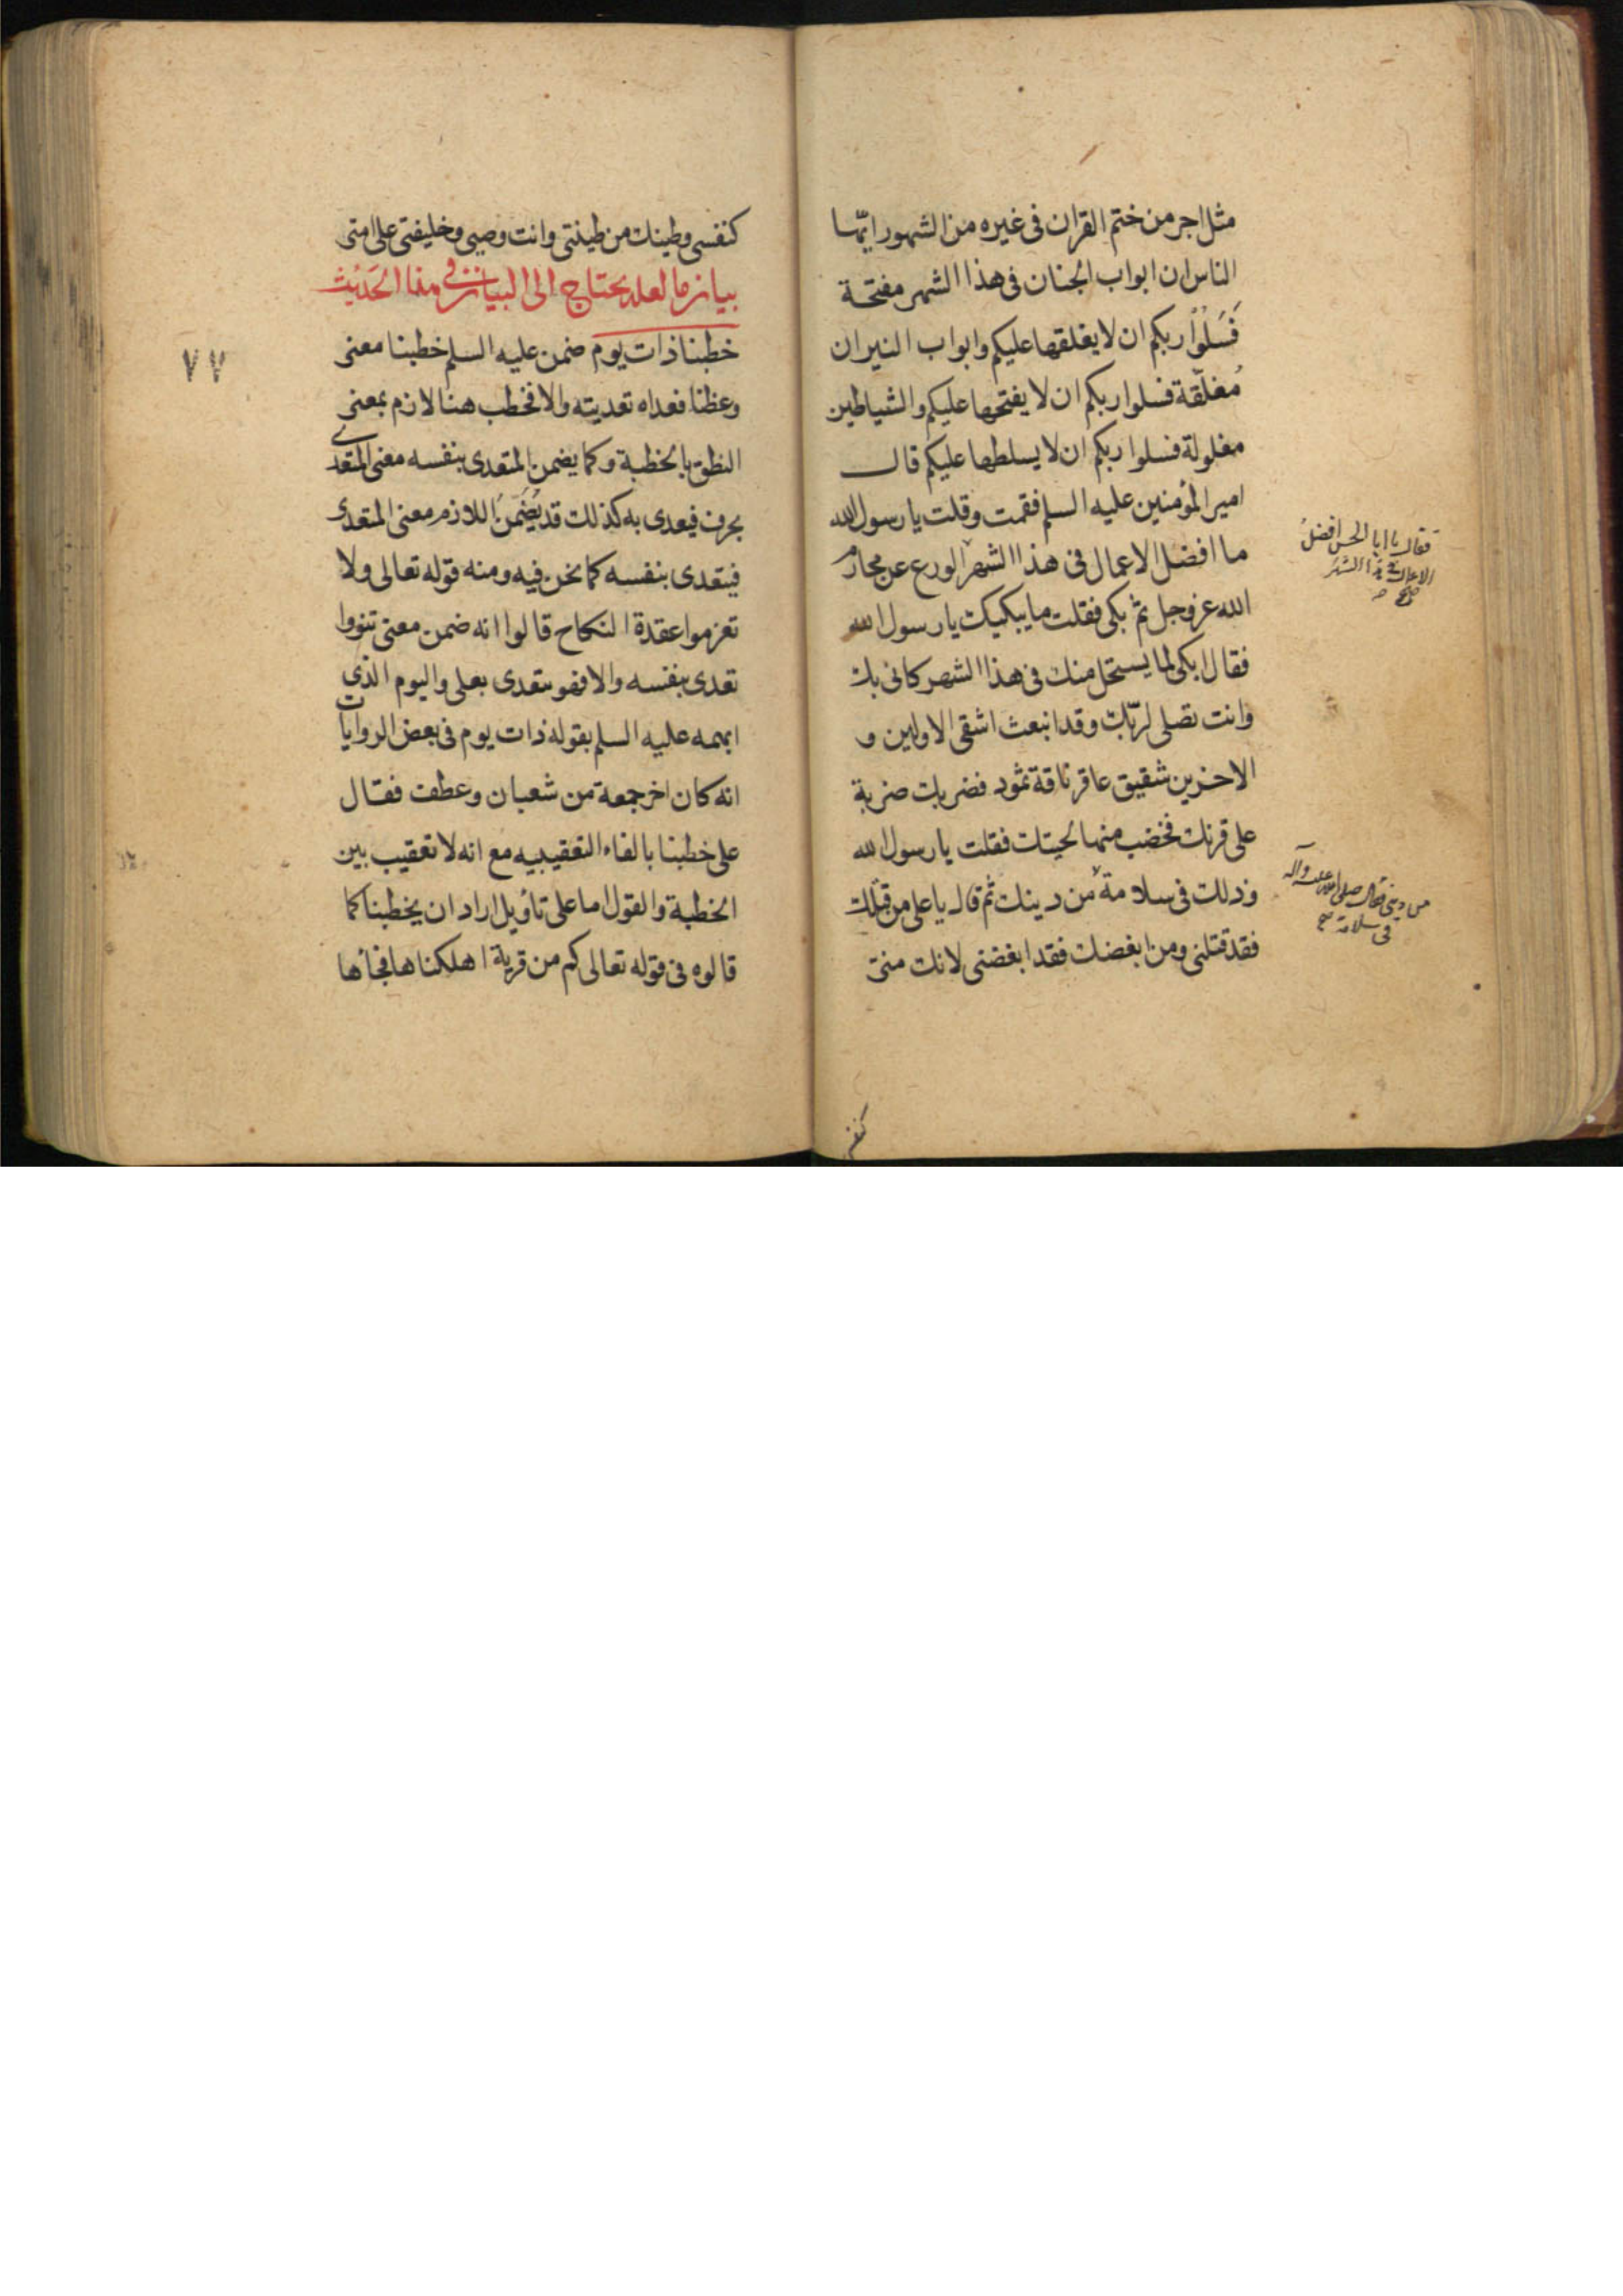 مثل اجر من ختم القران فى غيره من الشهور ايّها
الناس ان ابواب الجنان فى هذا الشهر مفتحة
فَسَلُوْا ربكم ان لا يغلقها عليكم وابواب النيران
مُغلّقة فسلوا ربكم ان لا يفتحها عليكم والشياطين
مغلولة فسلوا ربكم ان لا يسلطها عليكم قال
امير المؤمنين عليه السلم فقمت وقلت يا رسول الله
ما افضل الاعمال فى هذا الشهر الورع عن محارم
الله عز وجل ثم بكى فقلت ما يبكيك يا رسول الله
فقال ابكى لما يستحل منك فى هذا الشهر كانى بك
وانت تصلى لربّك وقد انبعث اشقى الاولين و
الاخرين شقيق عاقر ناقة ثمود فضربك ضربة
على قرنك فخضب منها لحيتك فقلت يا رسول الله
وذلك فى سلامة من دينك ثم قال يا على من قتلك
فقد قتلنى ومن ابغضك فقد ابغضنى لانك منى
فقال يا ابا الحسن افضل
الاعمال فى هذا الشهر
صح
من دينى فقال صلى الله عليه وآله
فى سلامة صح
كنفسى
كنفسى وطينك من طينتى وانت وصيى وخليفتى على امتى
بيان ما لعله يحتاج الى البيان فى هذا الحَديْث
خطبنا ذات يوم ضمن عليه السلم خطبنا معنى
وعظنا فعداه تعديته والا فخطب هنا لازم بمعنى
النطق بالخطبة وكما يضمن المتعدى بنفسه معنى المتعدى
بحرف فيعدى به كذلك قد يُضَمّنُ اللازم معنى المتعدى
فيتعدى بنفسه كما نحن فيه ومنه قوله تعالى ولا
تعزموا عقدة النكاح قالوا انه ضمن معنى تنووا
تعدى بنفسه والا فهو يتعدى بعلى واليوم الذى
ابهمه عليه السلم بقوله ذات يوم فى بعض الروايات
انه كان اخر جمعة من شعبان وعطف فقال
على خطبنا بالفاء التعقيبيه مع انه لا تعقيب بين
الخطبة والقول اما على تأويل اراد ان يخطبنا كما
قالوه فى قوله تعالى كم من قرية اهلكناها فجاءها
٧٧